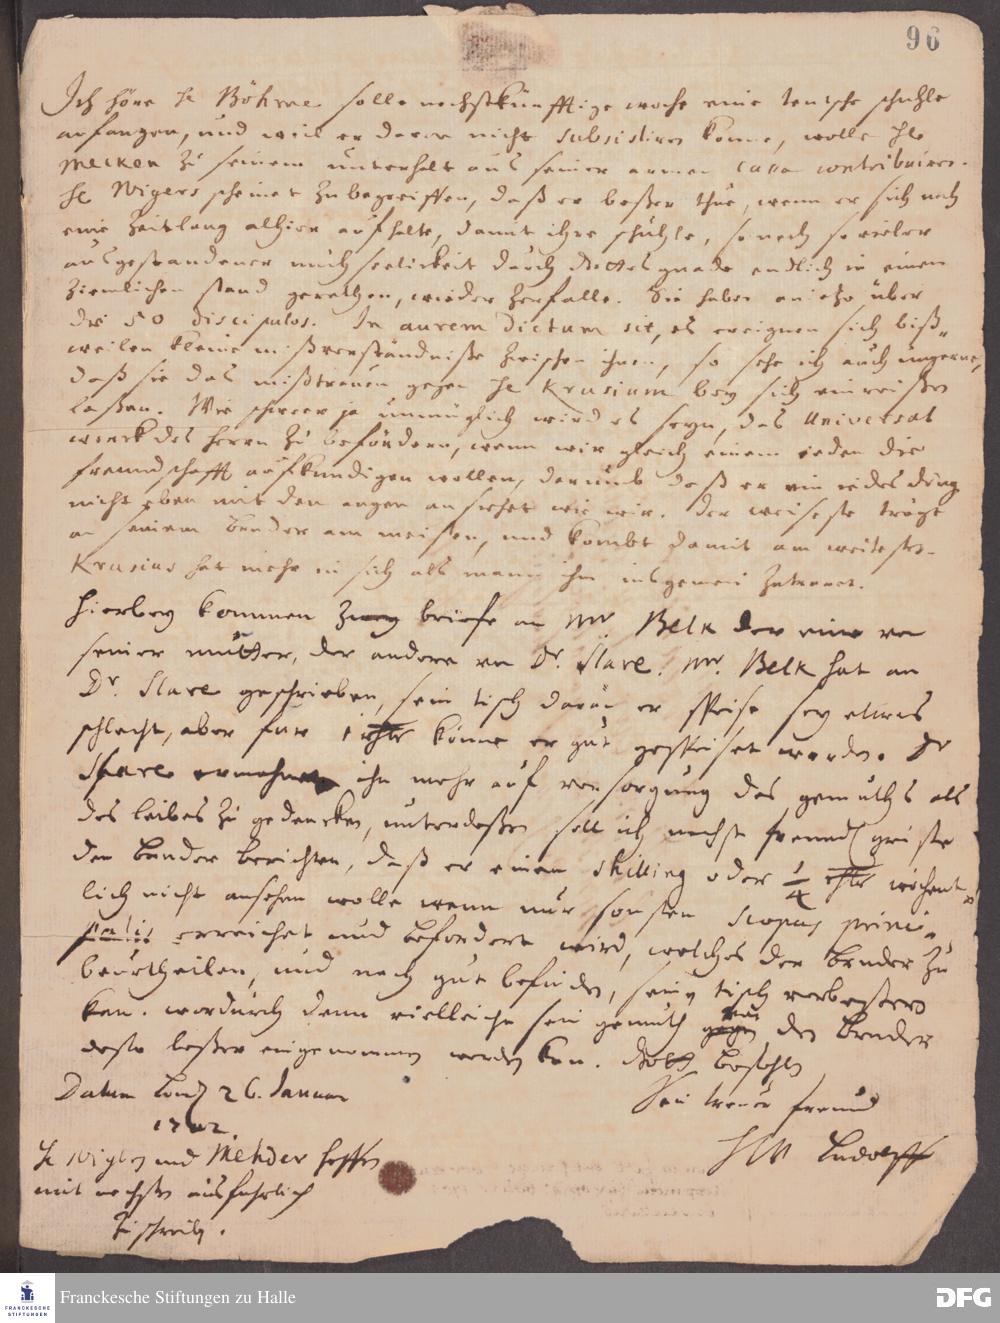 96
Ich höre H. Böhme solle nechstkünfftige woche eine teutsche schuhle
anfangen, und weil er davon nicht subsistiren könne, wolle H.
Mecken zu seinem unterhalt aus seiner armen casa contribuiren.
H. Wigers scheinet zubegreiffen, daß er beßer thue, wenn er sich noch
eine Zeitlang alhier aufhalte, damit ihre schuhle, so nach so vieler
ausgestandener muhseelickeit durch Gottes gnade endlich in einen
ziemlichen stand gerathen, wieder zerfalle. Sie haben anietzo über
die 50 discipulos. In aurem dictum sit, es ereignen sich biß-
weilen kleine mißverständniße zwischen ihnen, so sehe ich auch ungerne,
daß sie das mißtrauen gegen H. Krusium bey sich einreißen
laßen. Wie schwer ja unmüglich wird es seyn, das Universal
werck des Herrn zu befördern, wenn wir gleich einem ieden die
freundschafft aufkundigen wollen, darumb daß er ein iedes ding
nicht eben mit den augen ansiehet wie wir. Der weiseste trägt
an seinem bruder am meisten, und kombt damit am weitesten.
Krusius hat mehr in sich als mann ihm insgemein zutrauet.
Hierbey kommen zwey briefe an Mr Belk der eine von
seiner mutter, der andere von Dr. Slare. Mr. Belk hat an
Dr. Slare geschrieben, sein tisch daran er speise sey etwas
schlecht, aber fur 1 rthlr könne er gut gespeiset werden. Dr
Slare ermahnet ihn mehr auf versorgung des gemuths als
des leibes zu gedencken, unterdeßen soll ich nechst freundl. gruße
den bruder berichten, daß er einen skilling oder 1/4 rthlr wöchent-
lich nicht ansehen wolle wenn nur sonsten scopus princi-
palis erreichet und befordert wird, welches der bruder zu
beurtheilen, und nach gut befinden, seinen tisch verbeßern
kan. wordurch denn vielleicht sein gemuth von den bruder
desto beßer eingenommen werden kan. Gott befohlen
Datum Lond. 26. Januar
1702.
Sein treuer freund
HW Ludolff
H. Wigers und Mehder hoffen
mit nechsten ausfuhrlich
zu schreiben.
Franckesche Stiftungen zu Halle
FRANCKESCHE
STIFTUNGEN
DFG